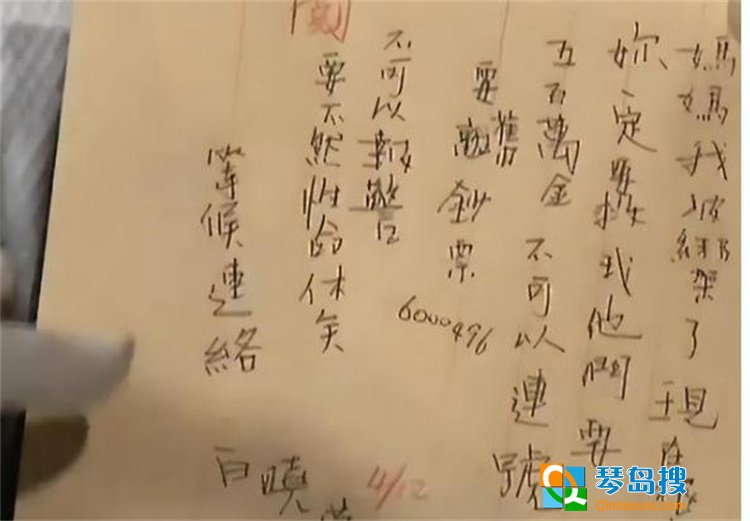 媽媽我被綁架了現在
妳一定要救我他們要
五百萬金 不可以連號
要舊鈔票
6000496
不可以報警
要不然性命休矣
等候連絡
白曉
4/12
琴岛搜